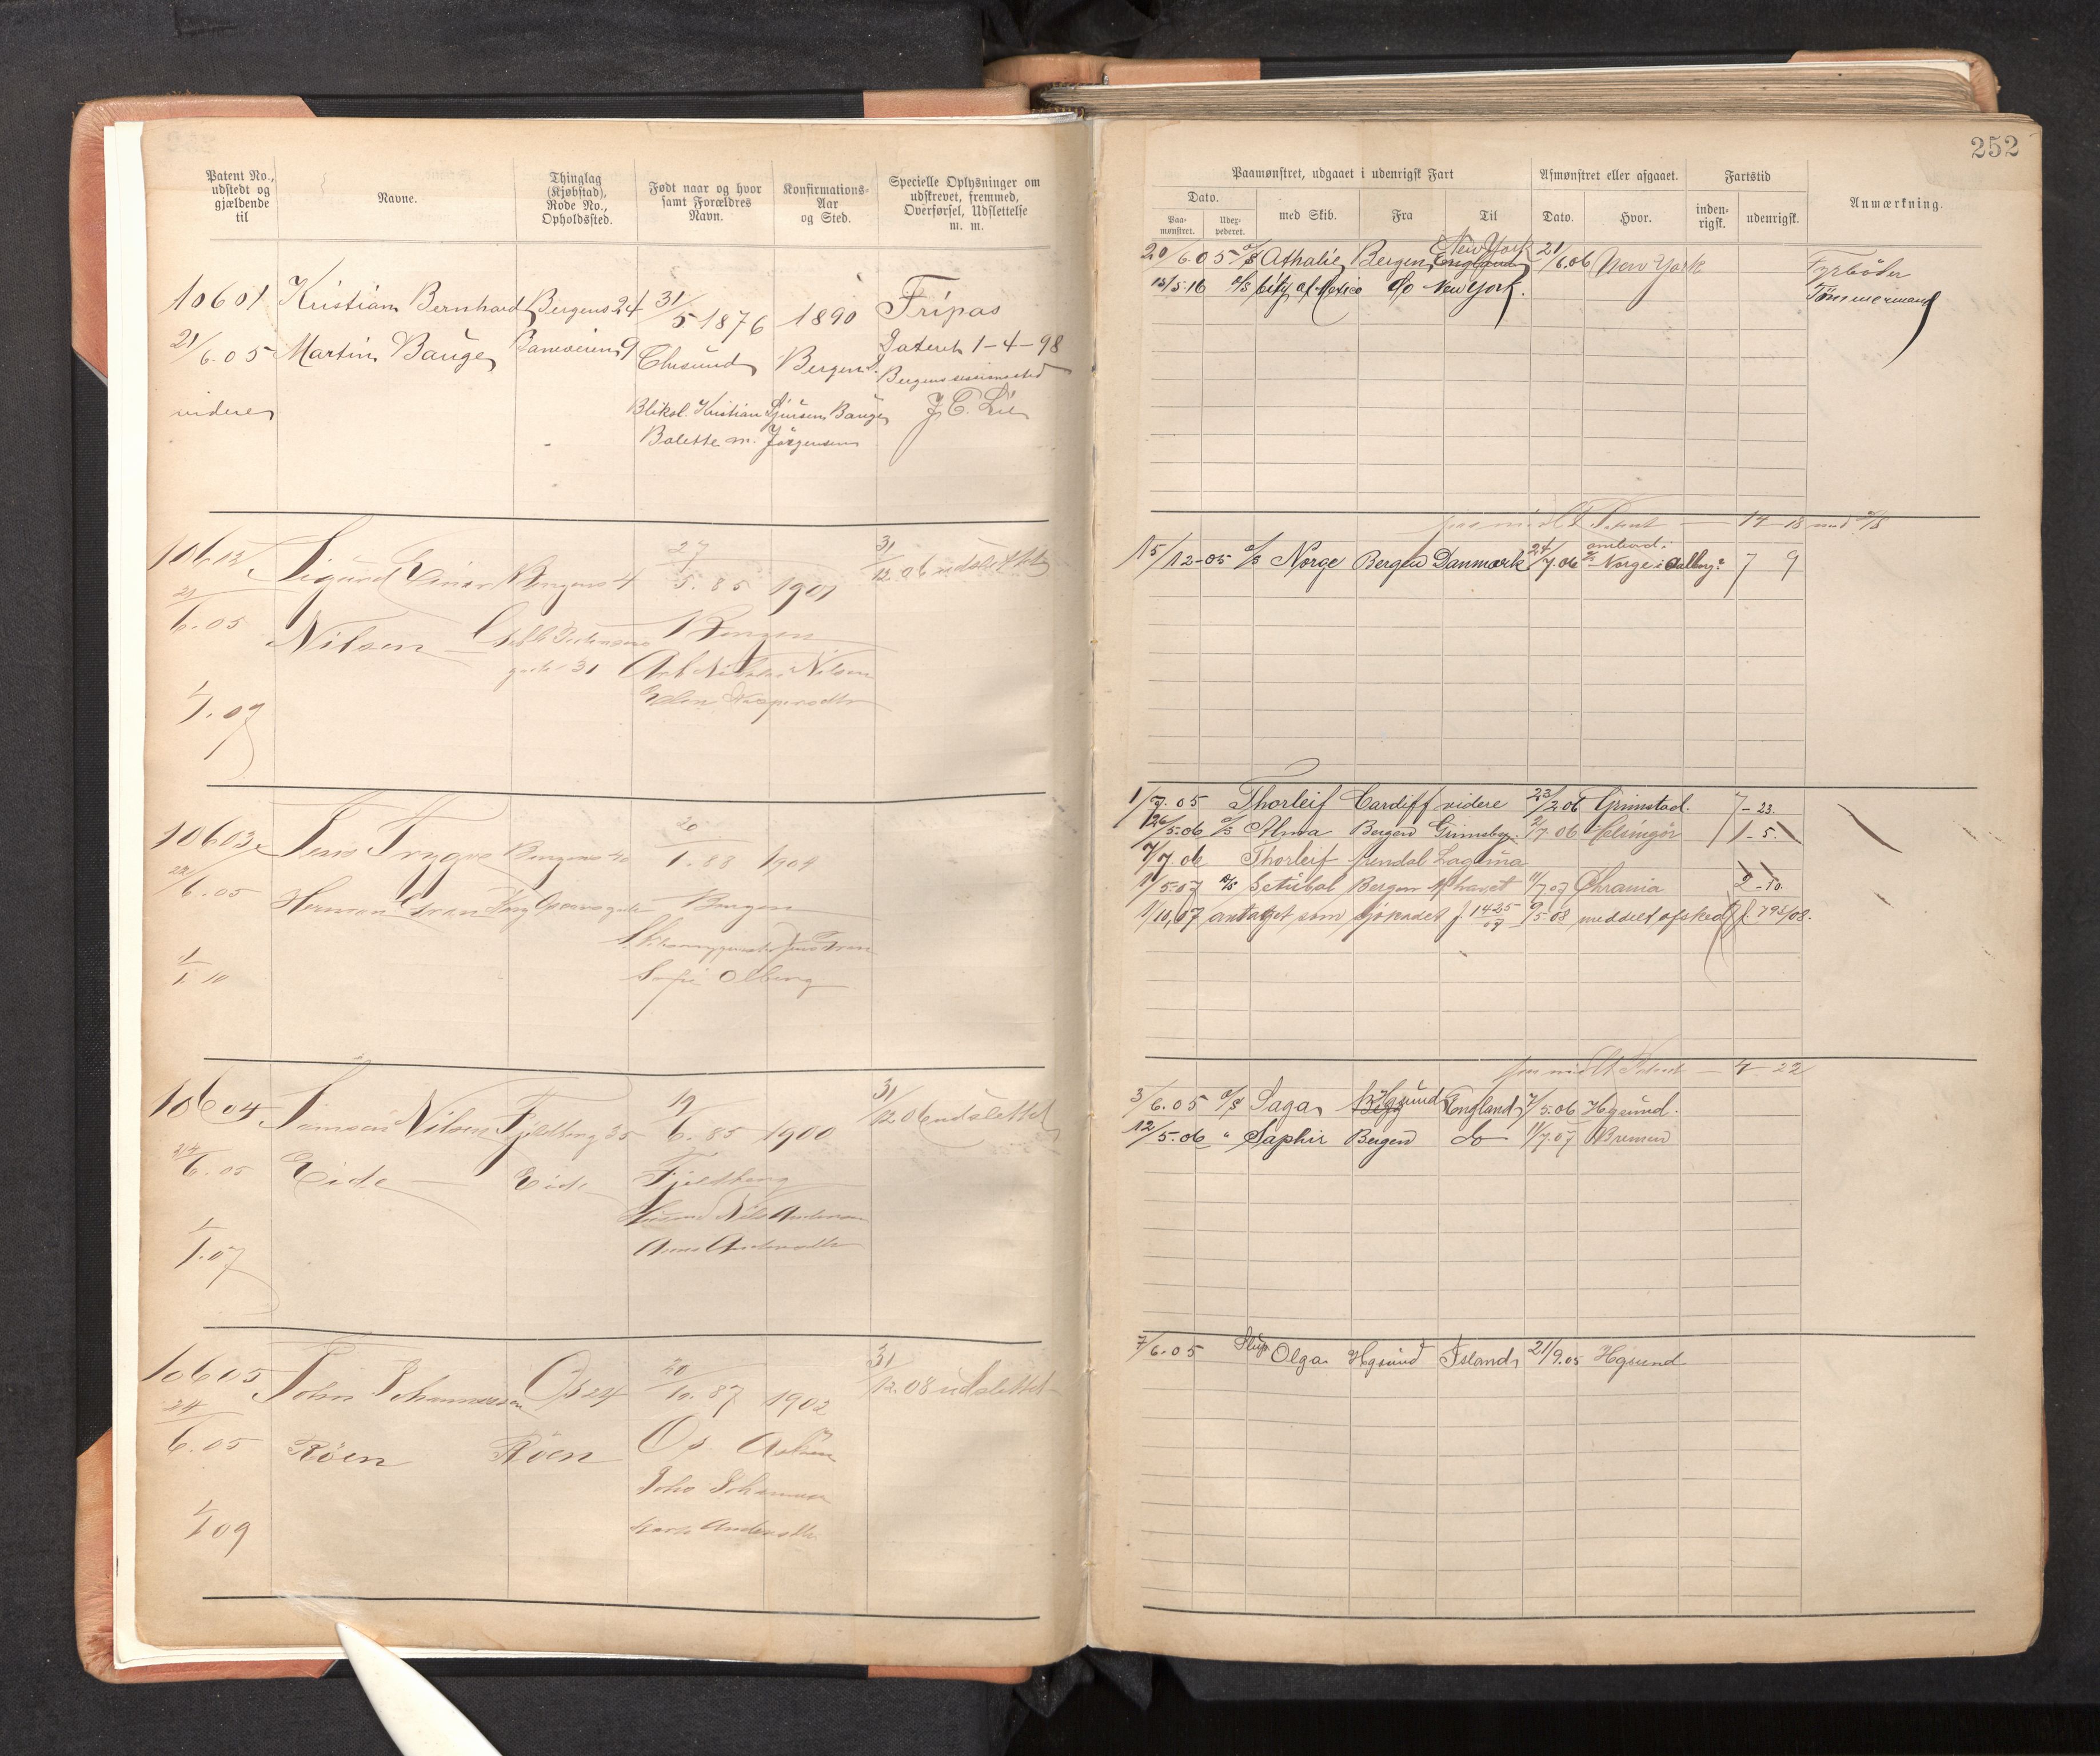 252
Patent No., udstedt og gjældende til
Navne.
Thinglag (Kjøbstad), Rode No., Opholdssted.
Født naar og hvor samt Forældres Navn.
Konfirmations-Aar og Sted.
Specielle Oplysninger om udskrevet, fremmed, Overførsel, Udslettelse m. m.
Paamønstret, udgaaet i udenrigsk Fart
Afmønstret eller afgaaet.
Fartstid
Anmærkning.
Dato.
Paa-mønstret.
med Skib.
Fra
Til
Dato.
Hvor.
inden-rigsk.
udenrigsk.
10601 Kristian Bernhard Bergens 24 31/5 1876 1890 Fripas
21/6.05 Martin Bauge 9 Chrsund Bergen Dateret 1-4-98
videre Bergens sessionssted
Kristian Sjursen Bauge J. C. Lie
Bolette m. Jørgensen
20/6 05 D/S Athalie Bergen England New York 21/6.06 New York Fyrbøder
13/5-16 D/S City of Mexico do New York. Tømmermand
10612 Sigurd Einar Bergens 4 27/5. 85 1901 31/12.06 udslettet
21/6.05 Nilsen Bergen
gade 31 Arb. Nilsen
1/1.07
14-18 med D/S
15/12-05 D/S Norge Bergen Danmark 24/7.06 ombord i D/S Norge i Aalborg 7 9
10603 Jens Trygve Bergens 20/1. 88 1904
22/6.05 Herman Gran Bergen
Jens Gran
1/1 10 Sofie Olberg
1/7. 05 Thorleif Cardiff videre 23/2.06 Grimstad. 7-23.
26/5-06 D/S Alma Bergen Grimsby. 2/7 06 Helsingør 1-5.
7/7 06 Thorleif Arendal Laguna
1/5-07 D/S Setubal Bergen Ishavet 11/7 07 Chrania 2-10.
1/10,07 antaget som sjøkadet J. 1425/07 9/5 08 meddelt afsked J. 795/08.
10604 Samson Nilsen Fjeldberg 35 19/6. 85 1900 31/12.06 udslettet
24/6.05 Eide Eide Fjeldberg
Nils Andersen
1/1.07 Anna Andersdtr
4-22
3/6.05 D/S Saga Hgsund England 7/5-06 Hgsund.
12/5-06 " Saphir Bergen do 11/7.07 Bremen
10605 John Johannessen Øs 24 20/10. 87 1902 31/12.08 udslettet
24/6.05 Røen Røen Øs
John Johannessen
1/1 09 Andersdtr
7/6.05 Slup Olga Hgsund Island 21/9.05 Hgsund